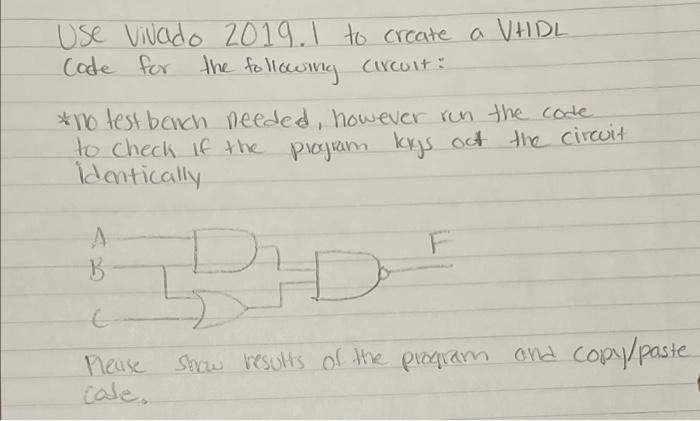 Use Vivado 2019.1 to create a VHDL
Code for the following circuit:
*no test bench needed, however run the code
to check if the program krys oct the circuit
identically
A
F
B
C
Please show results of the program and copy/paste
code.